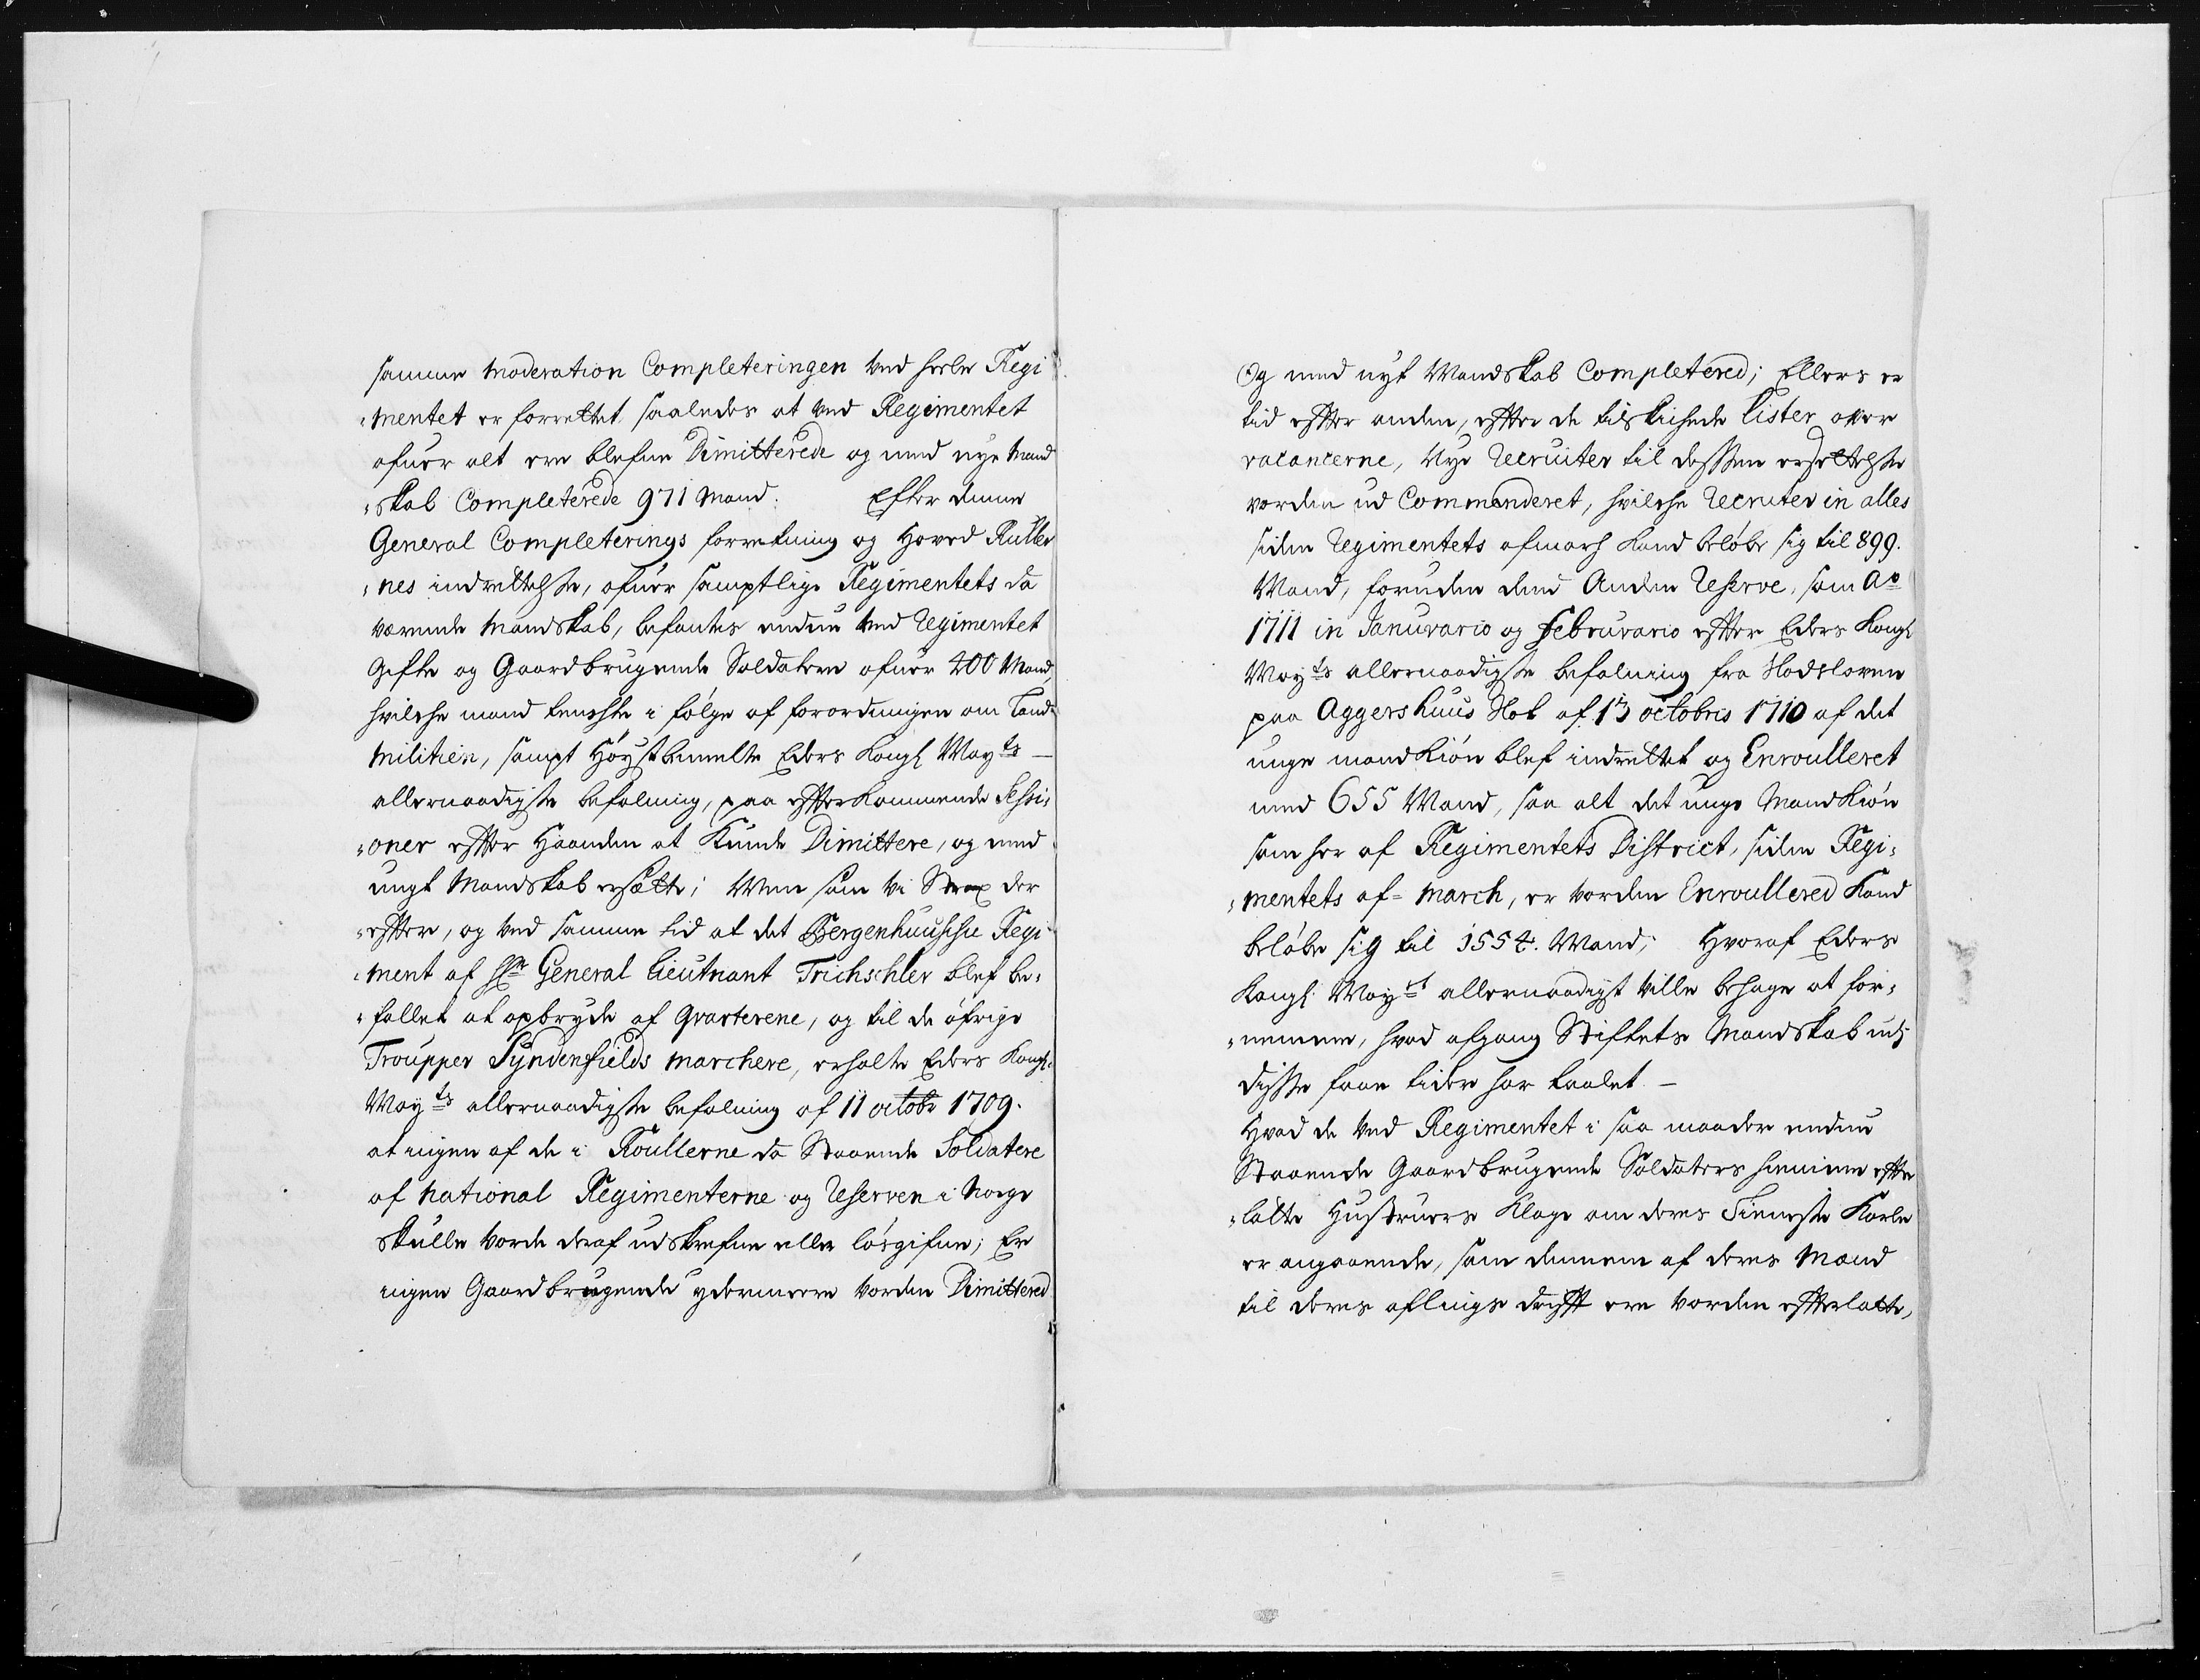 samme moderation Completeringen ved heele Regi
mentet er forrettet, saaledes at ved Regimentet
ofuer alt ere blefne Dimitterede og med nye Mand
skab Completerede 971 Mand. Efter denne
General Completerings forretning og Hoved Ruller
nes indrettelse, ofuer samptlige Regimentets da
værende Mandskab, befantes endnu ved Regimentet
Gifte og Gaardbrugende Soldatere ofuer 400 Mand,
hvilche mand tenchte i følge af forordningen om Land
militien, sampt Høystbemelte Eders Kongl Mayts
allernaadigste befalning, paa efterkommende Sessi
oner efter Haanden at kunde Dimittere, og med
ungt Mandskab ersætte; Men som vi Strax der
efter, og ved samme tid at det Bergenhuusische Regi
ment af Hr General Lieutnant Trichschler blef be
fallet at opbryde af Qvarterene, og til de øfrige
Troupper Syndenfields marchere, erholte Eders Kongl.
Mayts allernaadigste befalning af 11 octobr 1709.
at ingen af de i Roullerne da Staaende Soldatere
af National Regimenterne og Reserven i Norge
skulle vorde deraf udskrefne eller løsgifne; Er
ingen Gaardbrugende ydermeere vorden Dimittered
Og med nyt Mandskab Completered; Ellers er
tid efter anden, efter de tilskichede Lister ofver
vacancerne, Nye Recruiter til dessen ersettelse
vorden ud Commanderet, hvilche Recruter in alles
siden Regimentets afmarsh kand beløbe sig til 899.
Mand, foruden dend Anden Reserve, som Ao
1711 in Januvario og Februvario efter Eders Kongl
Mayts allernaadigste befalning fra Slodsloven
paa Aggershuus Slot af 13 octobris 1710 af det
unge mandkiøn blef indrettet og Enroulleret
med 655 Mand, saa alt det unge Mandkiøn
som her af Regimentets District, siden Regi
mentets af-march, er vorden Enroullered kand
beløbe sig til 1554. Mand, Hvoraf Eders
Kongl. Mayt allernaadigst ville behage at for
nemme, hvad afgang Stiftets Mandskab udj
disse faae tider har taalet.
Hvad de ved Regimentet i saa maader endnu
Staaende Gaardbrugende Soldaters hiemme efter
latte Hustruers Klage om deres Tieneste Karle
er angaaende, som dennem af deres Mænd
til deres aflings drift ere vorden efterlatte,